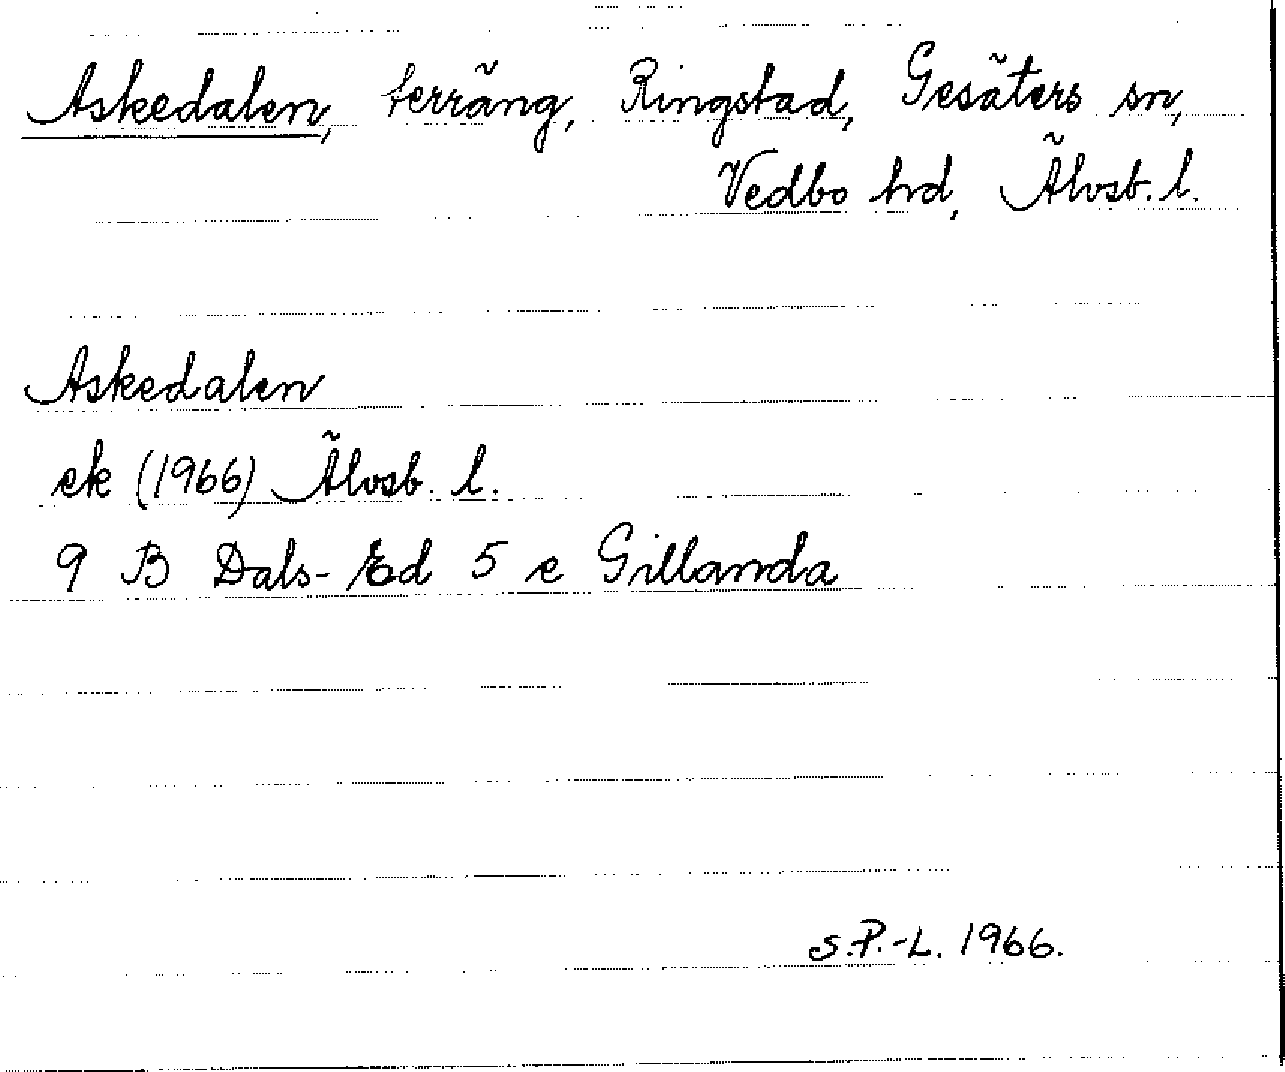 Askedalen, terräng, Ringstad, Gesäters sn,
Vedbo hd, Älvsb. l.
Askedalen
ek (1966) Älvsb. l.
9 B Dals-Ed 5 e Gillanda
S.P.-L. 1966.